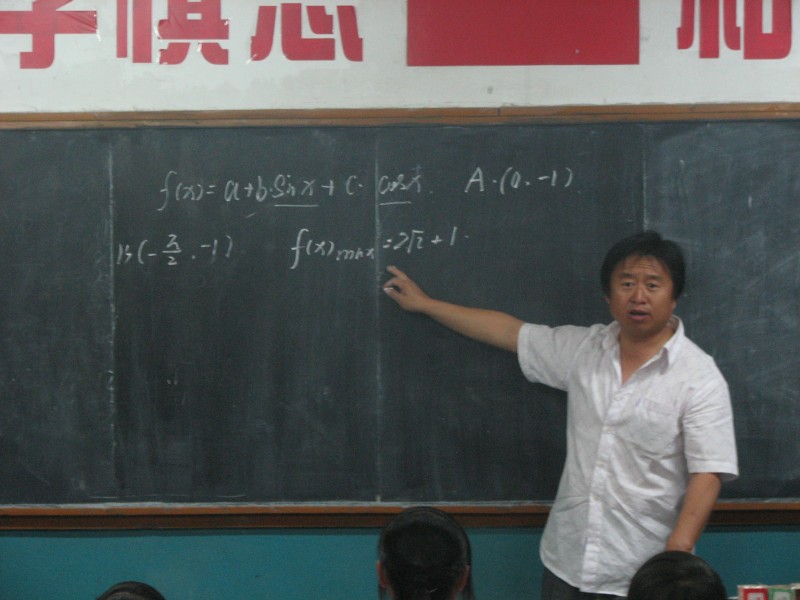 学祺思 和
f(x)=a+b·sinx+c·cosx. A·(0.-1)
B(-π/2.-1) f(x)max=2√2+1.